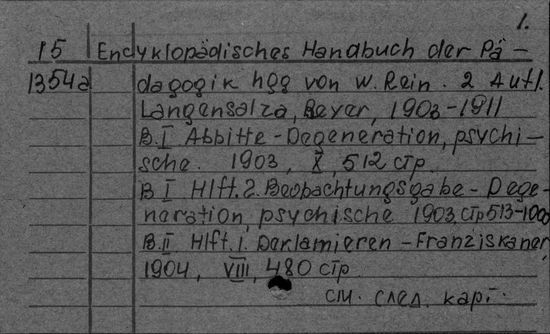 1.
15 Encyklopädisches Handbuch der Pä-
1354a dagogik hgg von W. Rein. 2 Aufl.
Langensalza, Beyer, 1903-1911
B.I Abbitte-Degeneration, psychi-
sche. 1903, X, 512 стр.
B I Hlft. 2. Beobachtungsgabe-Dege-
neration, psychische 1903, стр 513-1000
B.II Hlft. 1. Deklamieren-Franziskaner,
1904, VIII, 480 стр
см. след. карт.